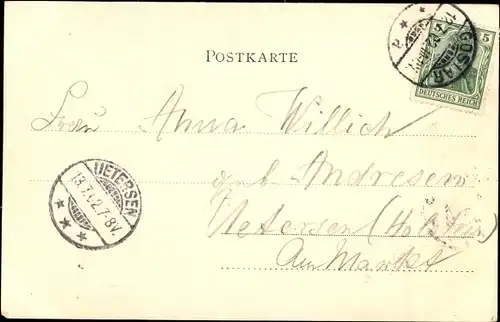 POSTKARTE
GOSLAR
5
DEUTSCHES REICH
Frau Anna Willich
geb. Andresen
UETERSEN
13.7.02.7-8V.
Uetersen (Holstein)
Am Markt